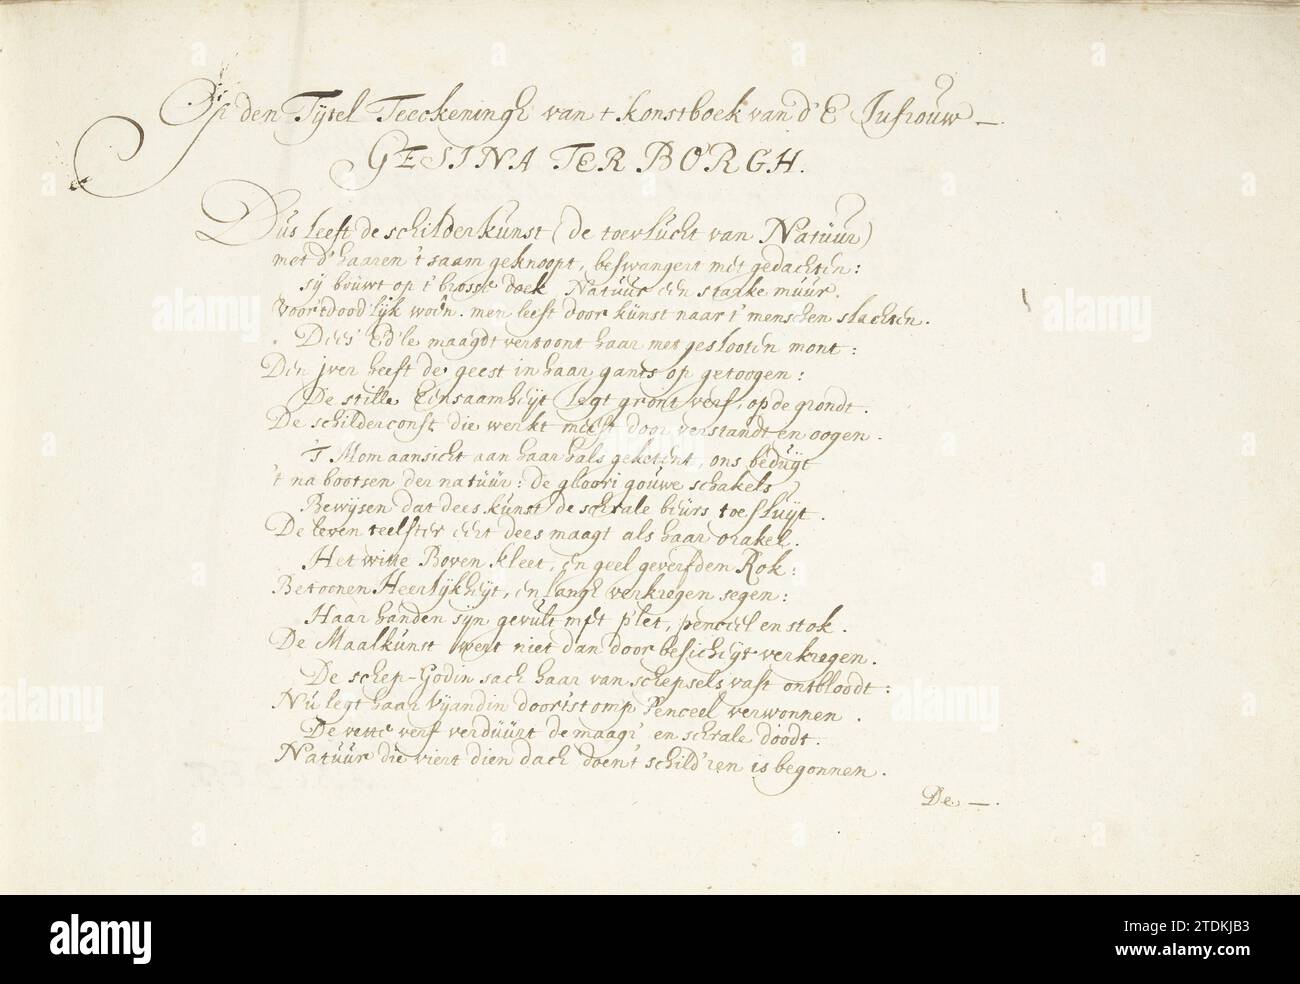 Op den Tytel Teeckeningh van t konstboek van d'E Jufrouw —
GESINA TER BORGH.
Dus leeft de schilderkunst (de toevlucht van Natuur)
met d'haaren 't saam geknoopt, beswangert met gedachten:
sy bouwt op 't brosse doek Natuur een starke muur.
Voortdood'lyk woên. men leeft door kunst naar t' menschen slachten.
Dees' Ed'le maagdt vertoont haar met geslooten mont:
Den jver heeft de geest in haar gants op getoogen:
De stille Eensaamheyt legt gront verf, op de grondt.
De schilderconst die werkt meest door verstandt en oogen.
'T Mom aansicht aan haar hals geketent, ons beduyt
't na bootsen der natuur: de gloori gouwe schakels
Bewysen dat dees kunst de schrale beurs toe sluyt.
De leven teelster eert dees maagt als haar orakel.
Het witte Boven kleet, en geel geverfden Rok:
Betoonen Heerlykheyt, en langh verkregen segen:
Haar handen syn gevult met p'let, penceel en stok.
De Maalkunst wert niet dan door besicheyt verkregen.
De schep-Godin sach haar van schepsels vast ontbloodt:
Nu legt haar Vyandin door 't stomp Penceel verwonnen.
De vette verf verduurt de maag're en schrale doodt.
Natuur die viert dien dach doen 't schild'ren is begonnen.
De —
alamy
Image ID: 2TDKJB3
www.alamy.com